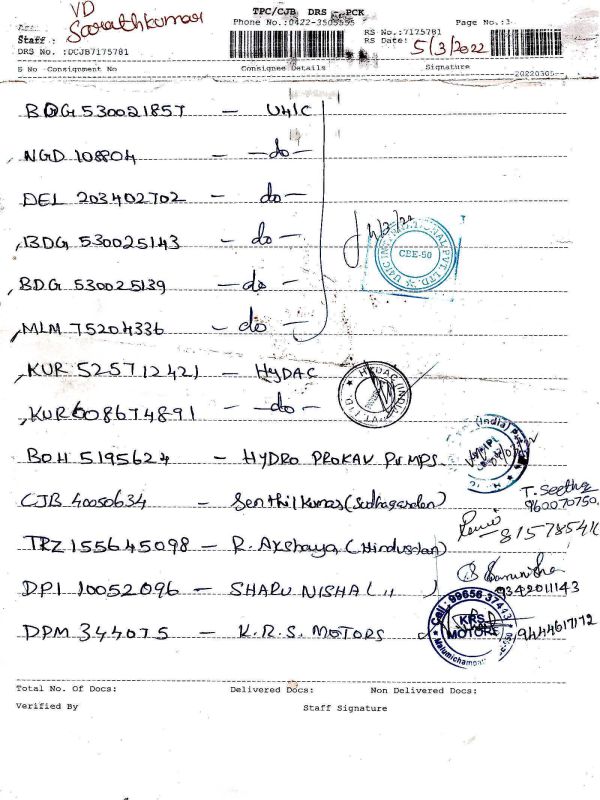 VD
Sarathkumar
TPC/CJB DRS PCK
Phone No.:0422-3505555
Page No.:1
Staff :
RS No.:7175781
RS Date: 5/3/2022
DRS No. :DCJB7175781
S No Consignment No Consignee Details Signature
20220305
BDG 530021857 - UNIC
NGD 108804 - do -
DEL 203402702 - do -
BDG 530025143 - do -
BDG 530025139 - do -
MLM 75204336 - do -
CBE-50
KUR 525712421 - HYDAC
KUR 608674891 - do -
HYDAC (INDIA) PVT. LTD
BOH 5195624 - HYDRO PROKAV PUMPS
(India)
CJB 40050634 - Senthilkumar
T. Seetha
TRZ 155645098 - R. Akshaya (Hindustan)
DPI 10052096 - SHARU NISHA ( ,, )
9342011143
DPM 344075 - K.R.S. MOTORS
Call : 99656 37443
KRS
MOTORS
9444617172
Total No. Of Docs: Delivered Docs: Non Delivered Docs:
Verified By Staff Signature